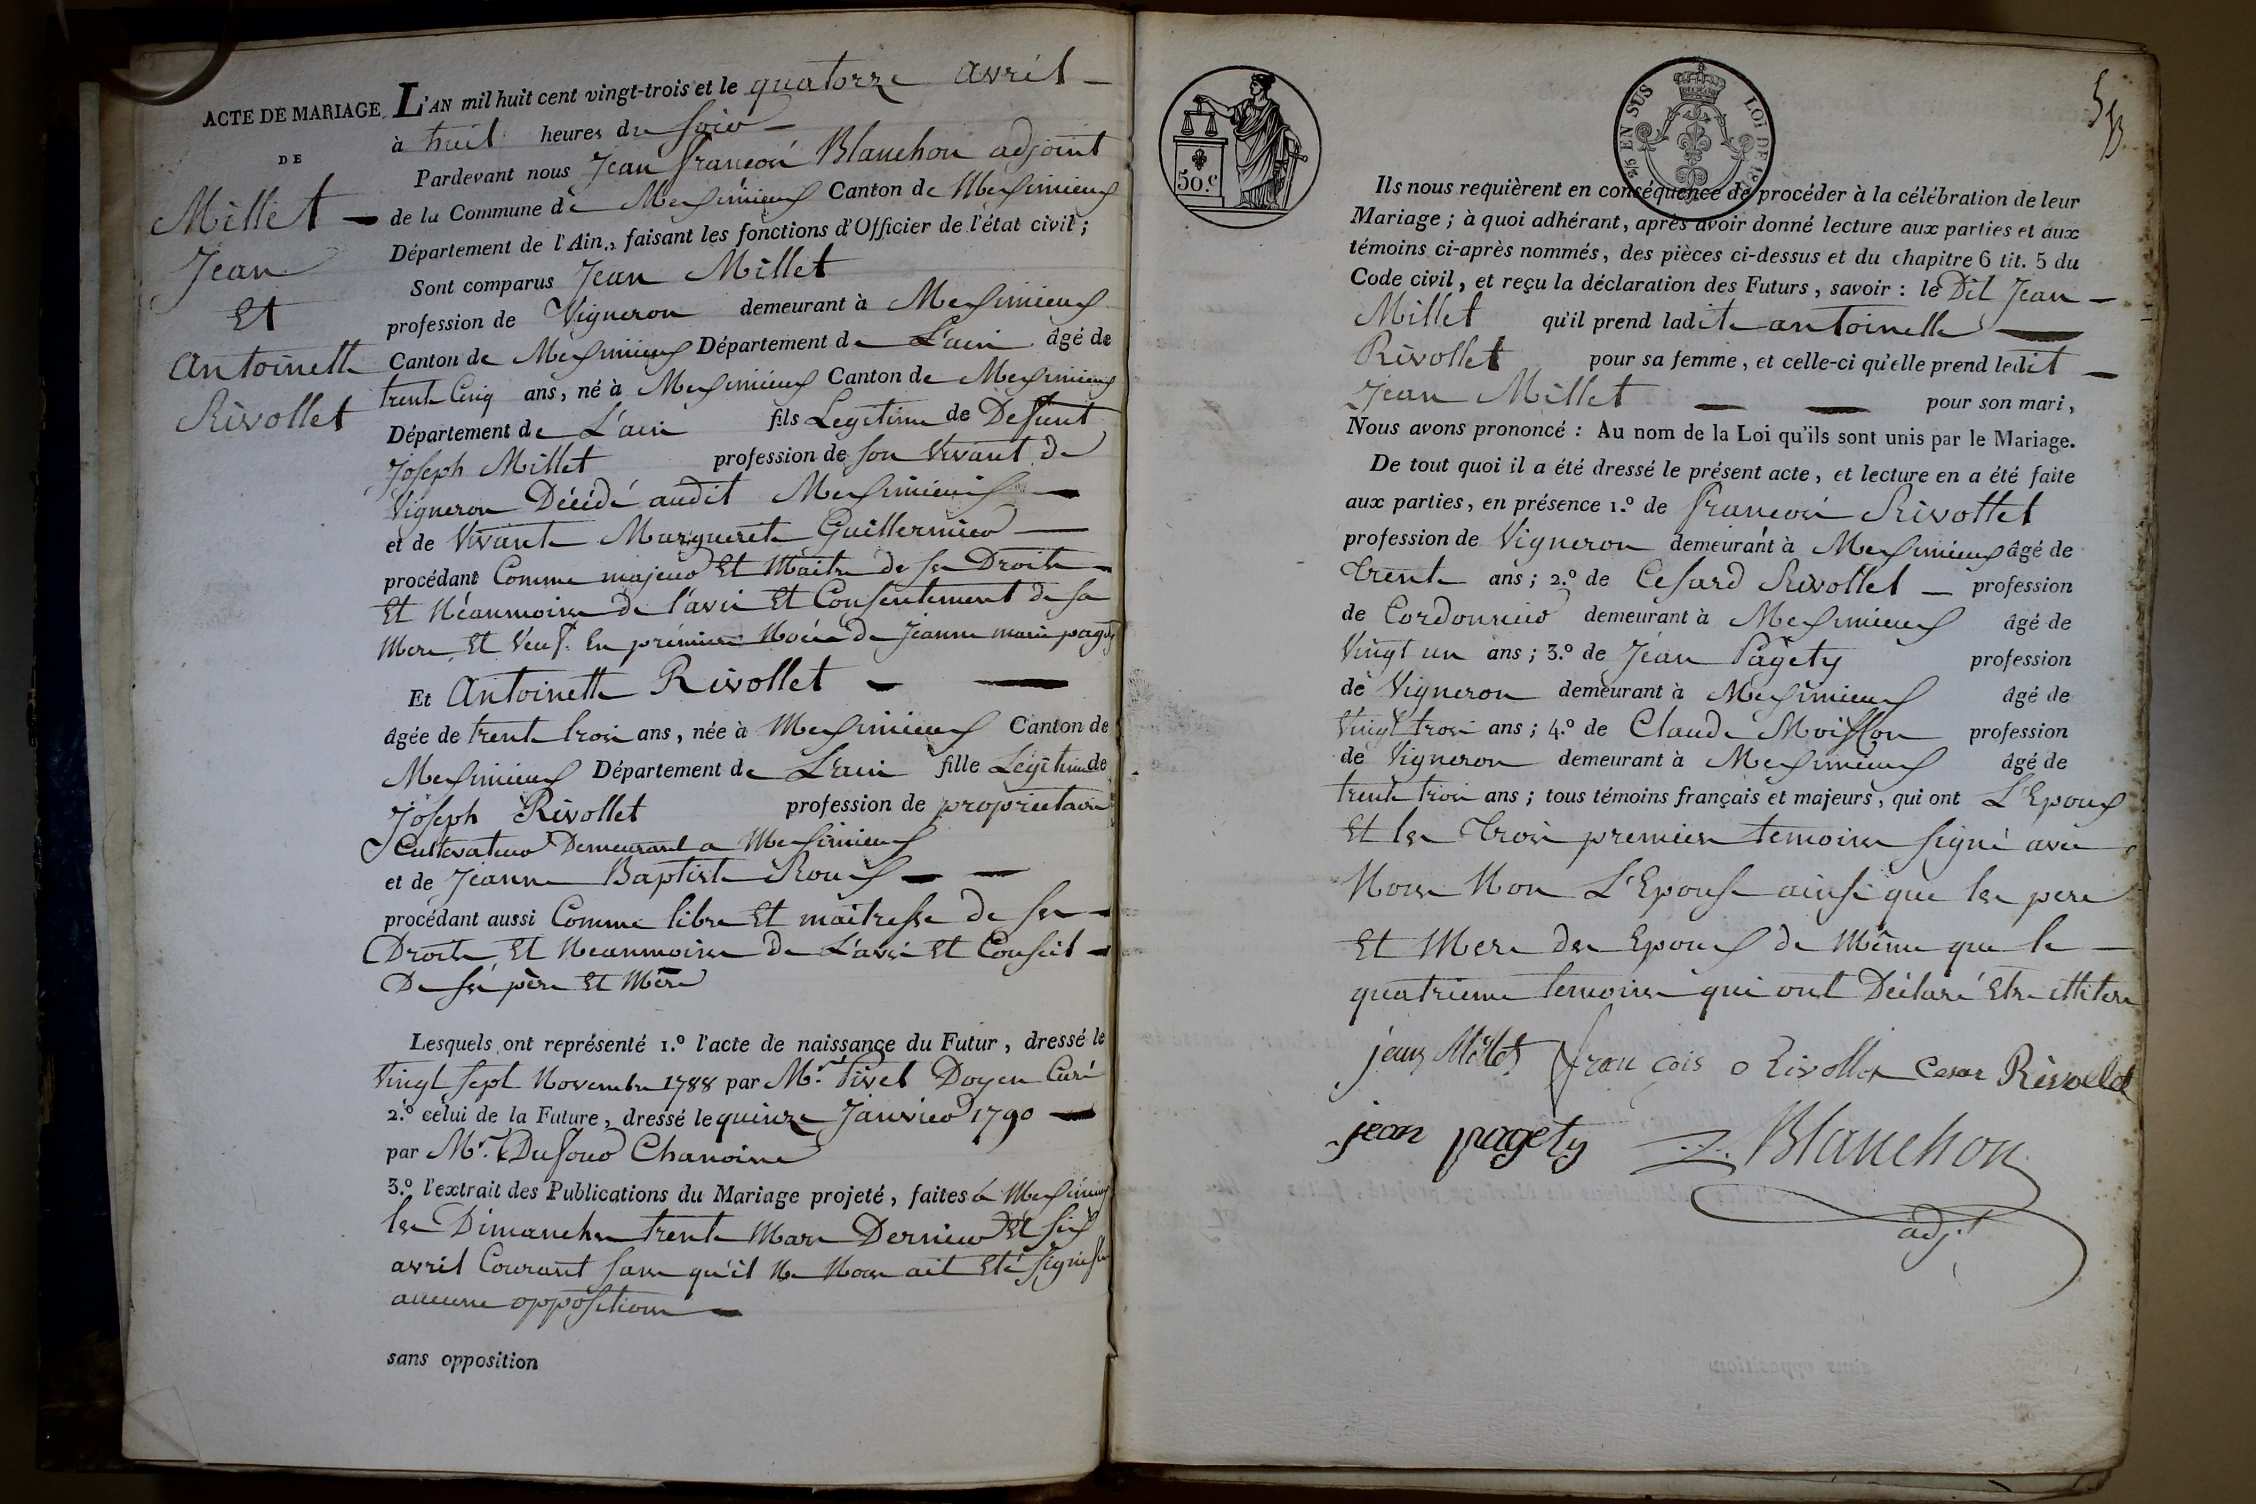 ACTE DE MARIAGE
DE
Millet
Jean
Et
Antoinette
Rivollet
L'AN mil huit cent vingt-trois et le quatorze avril
à huit heures du soir
Pardevant nous Jean françois Blanchon adjoint
de la Commune de Meximieux Canton de Meximieux
Département de l'Ain, faisant les fonctions d'Officier de l'état civil;
Sont comparus Jean Millet
profession de Vigneron demeurant à Meximieux
Canton de Meximieux Département de L'ain âgé de
trente Cinq ans, né à Meximieux Canton de Meximieux
Département de L'ain fils Legitime de Defunt
Joseph Millet profession de son Vivant de
Vigneron Décédé audit Meximieux
et de Vivante Marguerite Guillermier
procédant Comme majeur Et Maitre de ses Droits
Et Néanmoins de l'avis Et Consentement de sa
Mere, Et Veuf En prémiere Noces de Jeanne marie
Et Antoinette Rivollet
âgée de trente trois ans, née à Meximieux Canton de
Meximieux Département de L'ain fille Legitime de
Joseph Rivollet profession de proprietaire
Cultivateur Demeurant a Meximieux
et de Jeanne Baptiste Roux
procédant aussi Comme libre Et maitresse de ses
Droits, Et Neanmoins de L'avis Et Conseil
De ses père Et Mère
Lesquels ont représenté 1.º l'acte de naissance du Futur, dressé le
Vingt sept Novembre 1788 par Mr. Pivet Doyen Curé
2.º celui de la Future, dressé le quinze Janvier 1790
par Mr. Dufour Chanoine
3.º l'extrait des Publications du Mariage projeté, faites à Meximieux
les Dimanches trente Mars Dernier Et six
avril Courant sans qu'il Ne Nous ait Eté signifié
aucune opposition
sans opposition
50.C
EN SUS
LOI DE
53
Ils nous requièrent en conséquence de procéder à la célébration de leur
Mariage; à quoi adhérant, après avoir donné lecture aux parties et aux
témoins ci-après nommés, des pièces ci-dessus et du chapitre 6 tit. 5 du
Code civil, et reçu la déclaration des Futurs, savoir: le Dit Jean
Millet qu'il prend ladite antoinette
Rivollet pour sa femme, et celle-ci qu'elle prend ledit
Jean Millet pour son mari,
Nous avons prononcé: Au nom de la Loi qu'ils sont unis par le Mariage.
De tout quoi il a été dressé le présent acte, et lecture en a été faite
aux parties, en présence 1.º de françois Rivollet
profession de Vigneron demeurant à Meximieux âgé de
Trente ans; 2.º de Cesard Rivollet profession
de Cordonnier demeurant à Meximieux âgé de
Vingt un ans; 3.º de Jean Pagety profession
de Vigneron demeurant à Meximieux âgé de
Vingt trois ans; 4.º de Claude Moisson profession
de Vigneron demeurant à Meximieux âgé de
trente trois ans; tous témoins français et majeurs, qui ont L'Epoux
Et les Trois premiers temoins signé avec
Nous Non L'Epouse ainsi que les pere
Et Mere des Epoux de Même que le
quatrieme temoins qui ont Déclaré Etre illiteres
jean Millet françois Rivollet Cesar Rivollet
jean pagety Blanchon
adj.t